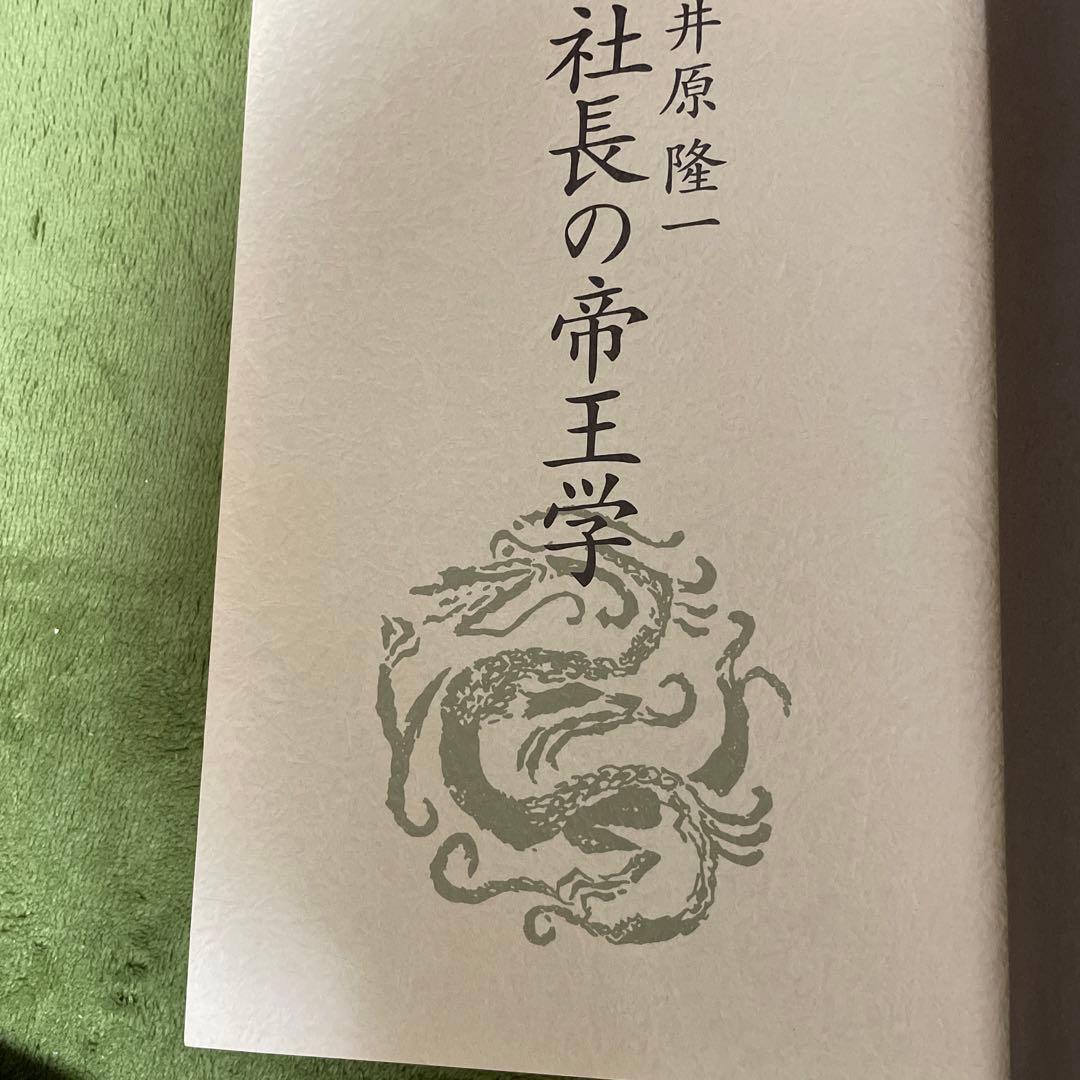 井原隆一
社長の帝王学